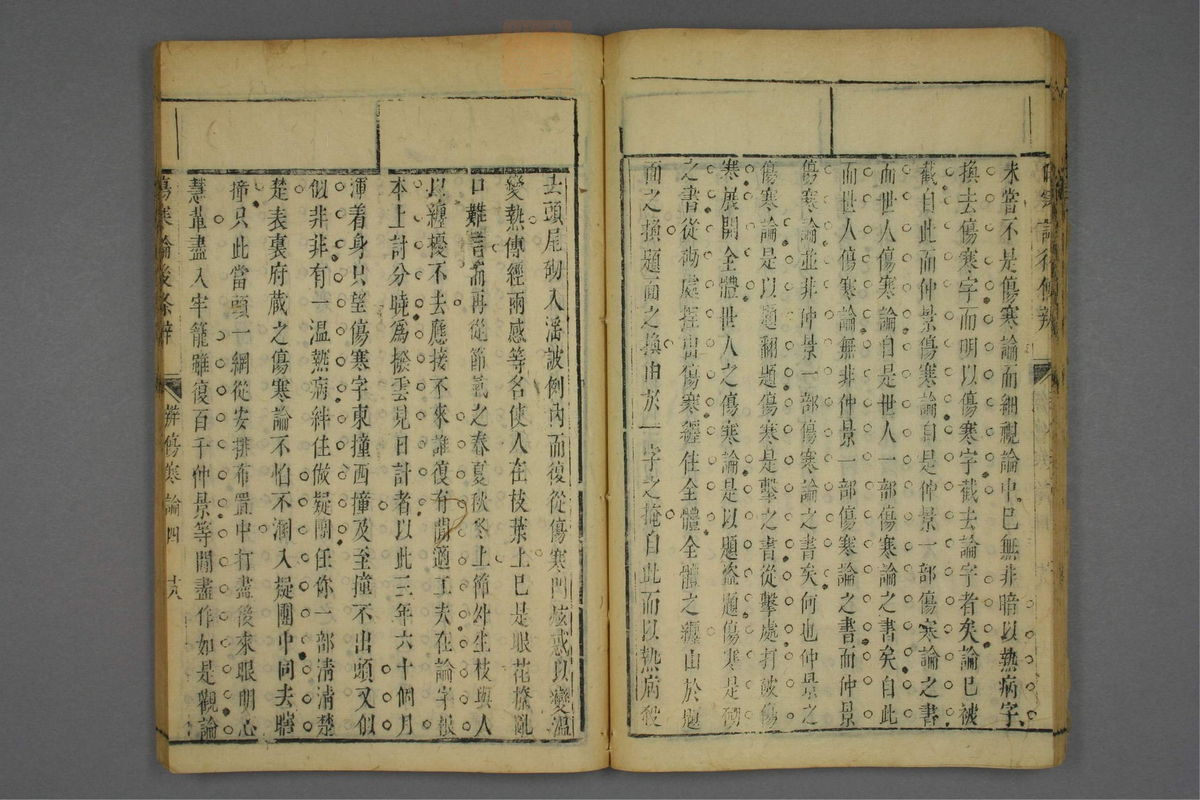 未嘗不是傷寒論而細視論中已無非暗以熱病字
換去傷寒字而明以傷寒字截去論字者矣論已被
截自此而仲景傷寒論自是仲景一部傷寒論之書
而世人傷寒論自是世人一部傷寒論之書矣自此
而世人傷寒論無非仲景一部傷寒論之書而仲景
傷寒論並非仲景一部傷寒論之書矣何也仲景之
傷寒論是以題翻題傷寒是擊之書從擊處打破傷
寒展開全體世人之傷寒論是以題盜題傷寒是砌
之書從砌處揑出傷寒纒住全體全體之纒由於題
面之換題面之換由於一字之掩自此而以熱病殺
去頭尾砌入滛詖例內而復從傷寒門廐惑以變溫
變熱傳經兩感等名使人在枝葉上已是眼花撩亂
口難言而再從節氣之春夏秋冬上節外生枝與人
以纏擾不去應接不來誰復有閒適工夫在論字報
本上計分曉爲撥雲見日計者以此三年六十個月
渾着身只望傷寒字東撞西撞及至撞不出頭又似
似非非有一溫熱病絆住做疑團任你一部清清楚
楚表裏府藏之傷寒論不怕不溷入疑團中同去瞎
撞只此當頭一綱從安排布置中打盡後來眼明心
慧輩盡入牢籠雖復百千仲景等閒盡作如是觀論
傷寒論後條辨
辨傷寒論四